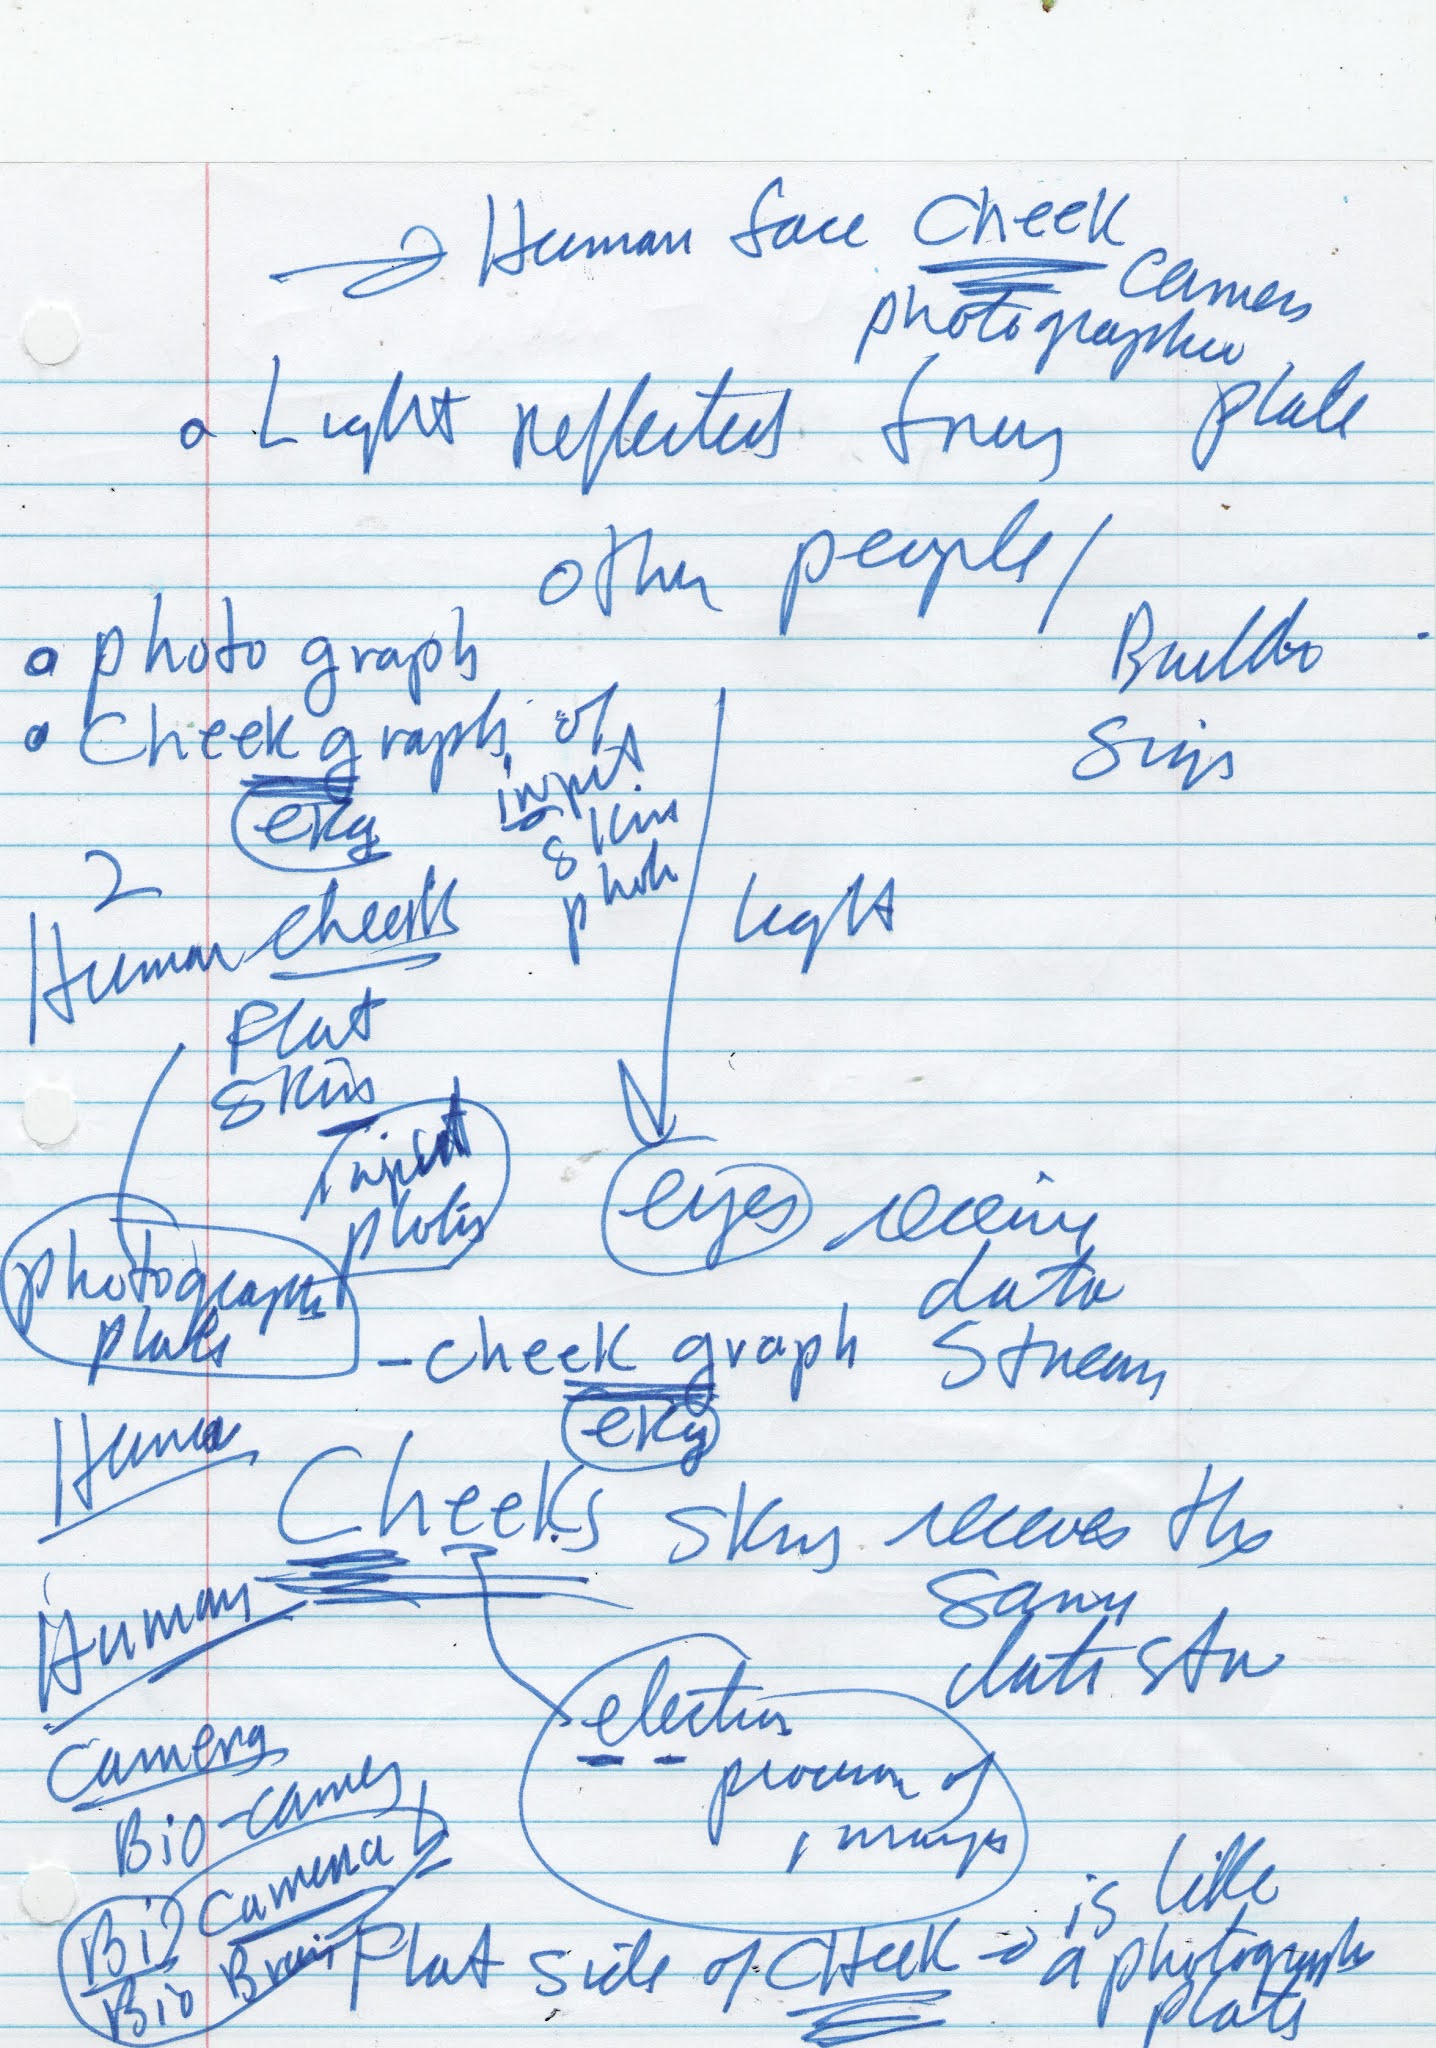 Human face Cheek
camera
photographic
plate
Light reflected from
other people/
Signs
photo graph
Cheek graph of
input
skin
ekg
2
Human cheeks
light
Flat
skin
input
photographic
plates
eyes receive
data
stream
- cheek graph
ekg
Human
Cheeks skin receives the
same
Human
electron
process of
images
camera
Bio-camera
Bio camera
Bio Brain
Flat side of CHeek → is like
a photograph
plate